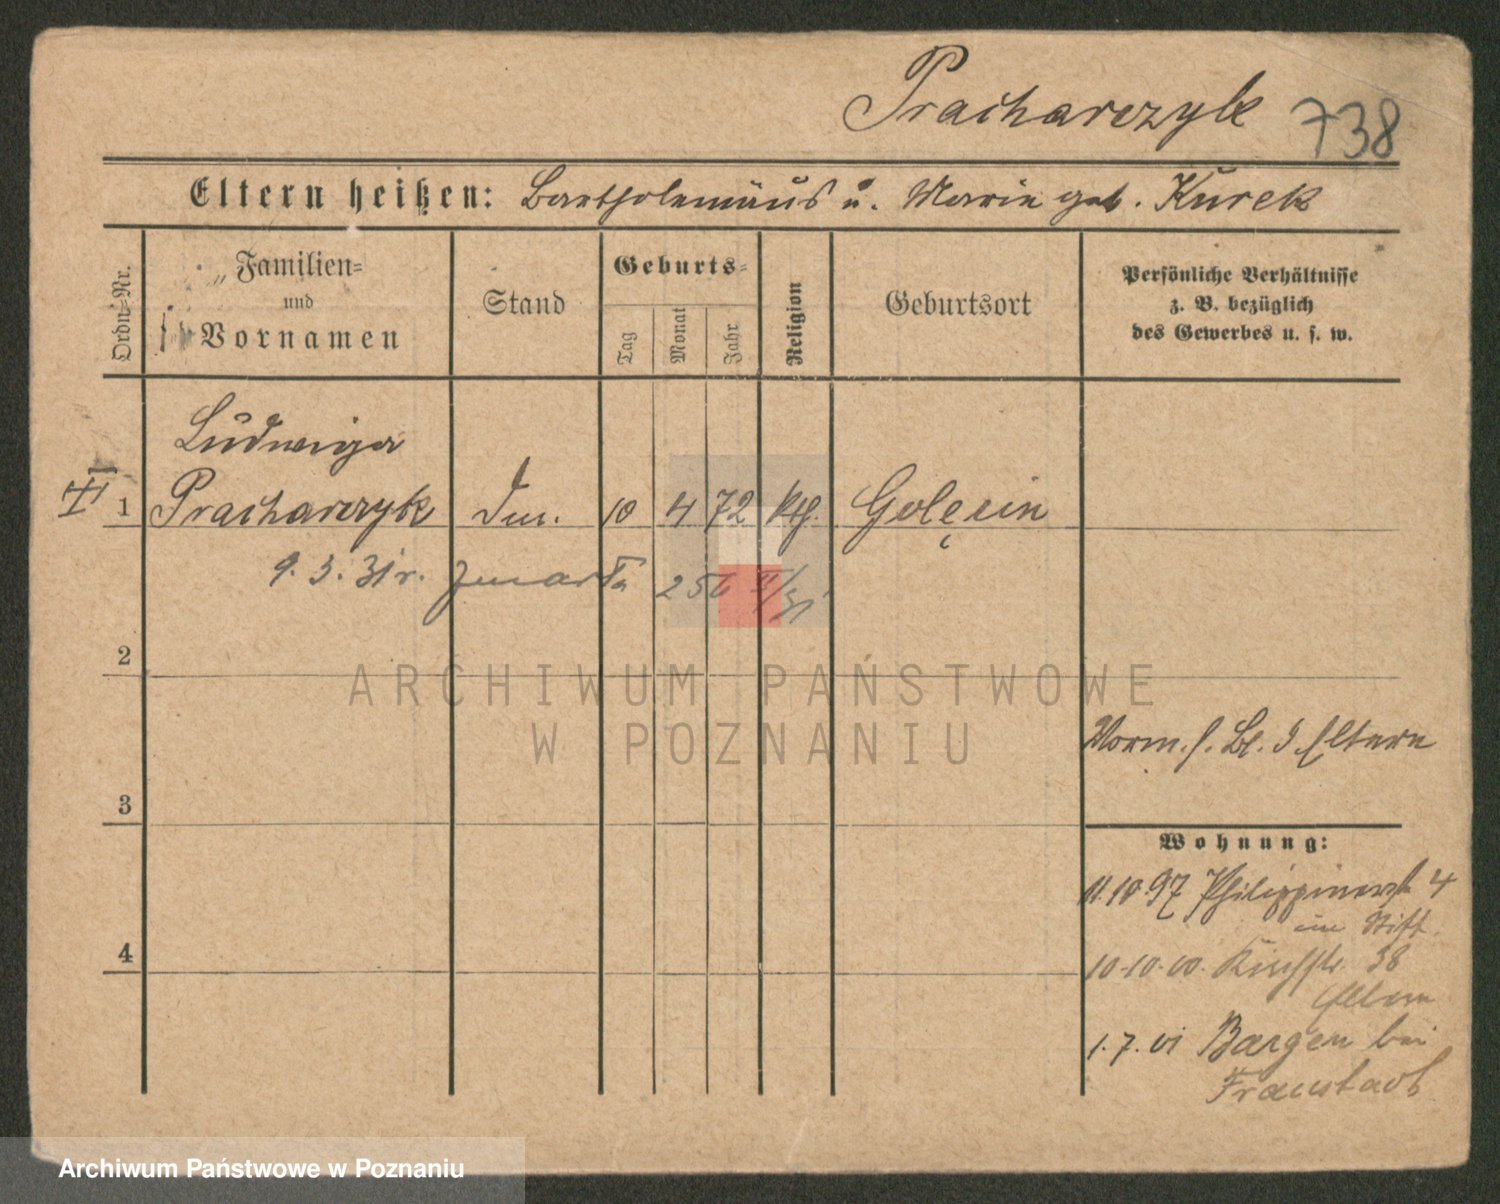 Pracharczyk 738
Eltern heißen: Bartholomäus u. Marie geb. Kurek
Ordn.-Nr.
Familien-
und
Vornamen
Stand
Geburts-
Tag
Monat
Jahr
Religion
Geburtsort
Persönliche Verhältnisse
z. B. bezüglich
des Gewerbes u. s. w.
Ludwiga
1 Pracharczyk 10 4 72 kth. Golęcin
9. 3. 31 r. zmarła 256 II/31
2
ARCHIWUM PAŃSTWOWE
W POZNANIU
Vorm. s. Bl. d. Eltern
3
Wohnung:
11.10.97 Philippinerstr 4
im Stift.
4
10.10.00. Kirchstr. 38
Eltern
1.7.01 Bargen bei
Fraustadt
Archiwum Państwowe w Poznaniu